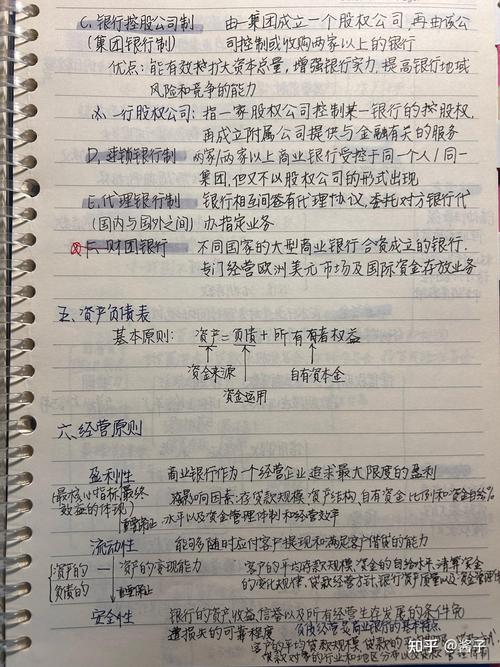 C. 银行控股公司制 由一集团成立一个股权公司,再由该公
(集团银行制) 司控制或收购两家以上的银行
优点:能有效扩大资本总量,增强银行实力,提高银行地域
风险和竞争的能力
※ 一行股权公司:指一家股权公司控制某一银行的控股权,
再成立附属公司提供与金融有关的服务
D. 连锁银行制 两家/两家以上商业银行受控于同一个人/同一
集团,但又不以股权公司的形式出现
E. 代理银行制 银行相互间签有代理协议,委托对方银行代
(国内与国外之间) 办指定业务
F. 财团银行 不同国家的大型商业银行合资成立的银行.
专门经营欧洲美元市场及国际资金存放业务
五、资产负债表
基本原则: 资产=负债+所有者权益
资金来源 自有资本金
资金运用
六、经营原则
盈利性 商业银行作为一个经营企业追求最大限度的盈利
(最核心指标,最终 影响因素:存贷款规模、资产结构、自有资金比例和资金自给
效益的体现) 水平以及资金管理体制和经营效率
流动性 能够随时应付客户提现和满足客户借贷的能力
资产的 资产的变现能力 客户的平均存款规模、资金的自给水平、清算资金
负债的 的变化规律、贷款经营方针、银行资产质量以及资金管理体制
安全性 银行的资产收益、信誉以及所有经营生存发展的条件免
遭损失的可靠程度 负债经营是商业银行的基本特点
客户的平均贷款规模、贷款的
贷款对象的行业和地区分布以及贷款管理体制
知乎 @酱子